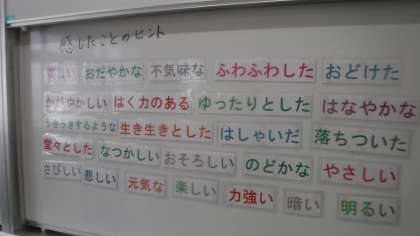 感じたことのヒント
おだやかな 不気味な ふわふわした おどけた
かがやかしい はく力のある ゆったりとした はなやかな
うきうきするような 生き生きとした はしゃいだ 落ちついた
堂々とした なつかしい おそろしい のどかな やさしい
さびしい 悲しい 元気な 楽しい 力強い 暗い 明るい